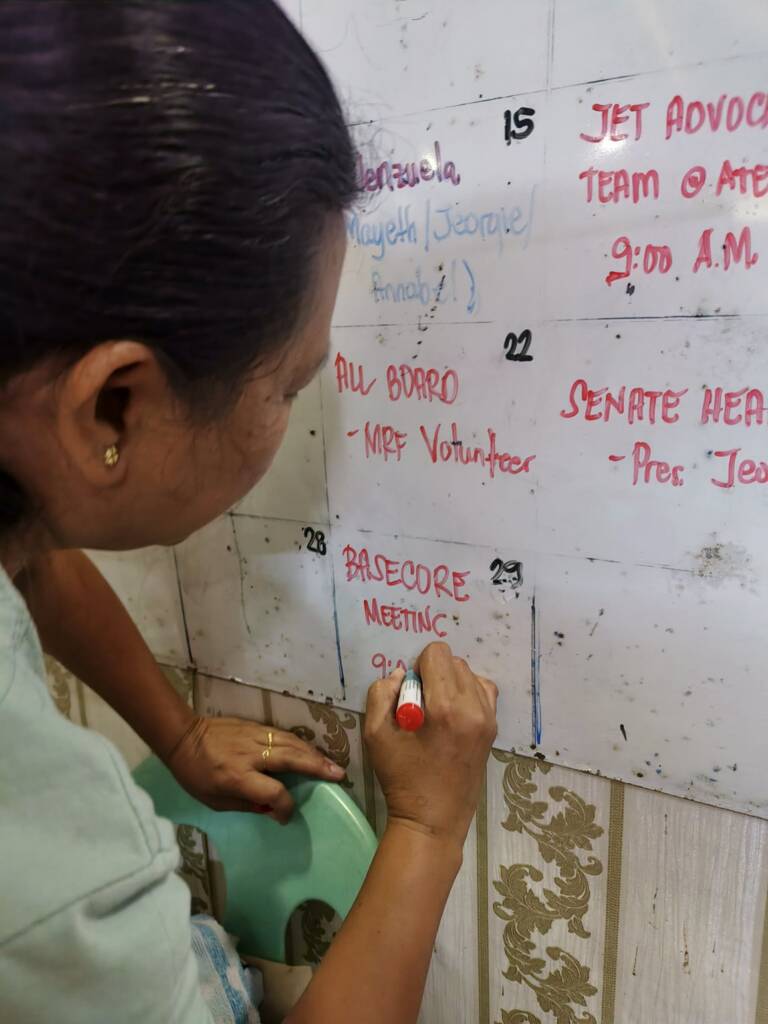 15
JET ADVOCA
TEAM @ ATE
9:00 A.M.
lenzuela
Mayeth/Jeorgie/
Annabel)
22
ALL BOARD
- MRF Volunteer
SENATE HEA
- Pres. Jeo
28
29
BASECORE
MEETING
9:0